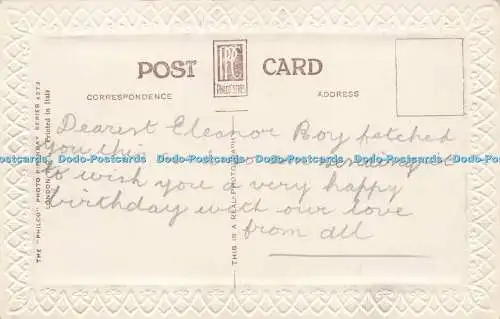 POST CARD
CORRESPONDENCE ADDRESS
Dearest Eleanor Roy fetched
you this
to wish you a very happy
birthday with our love
from all
Dodo-Postcards Dodo-Postcards Dodo-Postcards Dodo-Postcards Dodo-Postcards
THE "PHILCO" PHOTO BIRTHDAY SERIES
LONDON Printed in Italy
THIS IS A REAL PHOTOGRAPH